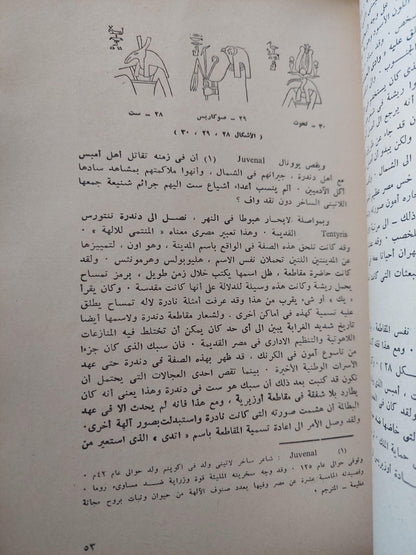 ٢٨ – ست
٢٩ – سوكاريس
٣٠ – تحوت
( الأشكال ٢٨ ، ٢٩ ، ٣٠ )
ويقص يوونال Juvenal (١) أن فى زمنه تقاتل أهل أمبس
مع أهل دندرة ، جيرانهم فى الشمال ، وأنهوا ملاكمتهم بمشاهد سادها
أكل الآدميين. ألم ينسب أعداء أشياع ست اليهم جرائم شنيعة جمعها
اللاتينى الساخر دون نقد واف ؟
وبمواصلة الابحار هبوطا فى النهر ، نصل الى دندرة تنتورس
Tentyris القديمة . وهذا تعبير مصرى معناه « المنتمى للالهة » .
وقد كانت تلحق هذه الصفة فى الواقع باسم المدينة ، وهو اون ، لتمييزها
عن المدينتين اللتين تحملان نفس الاسم ، هليوبولس وهرمونتس . ولقد
كانت حاضرة مقاطعة ، ظل اسمها يكتب خلال زمن طويل ، برمز تمساح
يحمل ريشة وكانت هذه وسيلة للدلالة على أنها كانت مقدسة . وكان يقرأ
« يك » أو شىء يقرب من هذا وقد عرفت أمثلة نادرة لاله تمساح يطلق
عليه تسمية كهذه فى أماكن أخرى . ولشعار مقاطعة دندرة ولاسمها أيضا
تاريخ شديد الغرابة يبين الى أى حد كان يمكن أن تختلط فيه المنازعات
اللاهوتية والتنظيم الادارى فى مصر القديمة . فان سبك الذى كان جزءا
من تاسوع آمون فى الكرنك ، قد ظهر بهذه الصفة فى دندرة حتى عهد
الأسرات الوطنية الأخيرة . بينما تقص احدى العجالات التى يحتمل أن
تكون قد كتبت بعد ذلك أن سبك هو ست وهذا يعنى أنه كان
يطارد بلا شفقة فى مقاطعة أوزيرية ، ومع هذا فانه لم يحدث الا فى عهد
البطالة أن هشمت صورته التى كانت نادرة واستبدلت بصور آلهة أخرى .
ولقد وصل الأمر الى اعادة تسمية المقاطعة باسم « اتدى » الذى استعير من
(١) Juvenal : شاعر ساخر لاتينى ولد فى اكوينم ولد حوالى عام ٤٢م .
وتوفى حوالى عام ١٢٥ . وقد وجه سخريته المليئة قوة وزراية ضد مساوىء روما .
وقصيدته الخامسة عشرة عن مصر وفيها يعدد صنوف الآلهة من حيوان ونبات بروح مجانة
عظيمة – المترجم .
٥٣